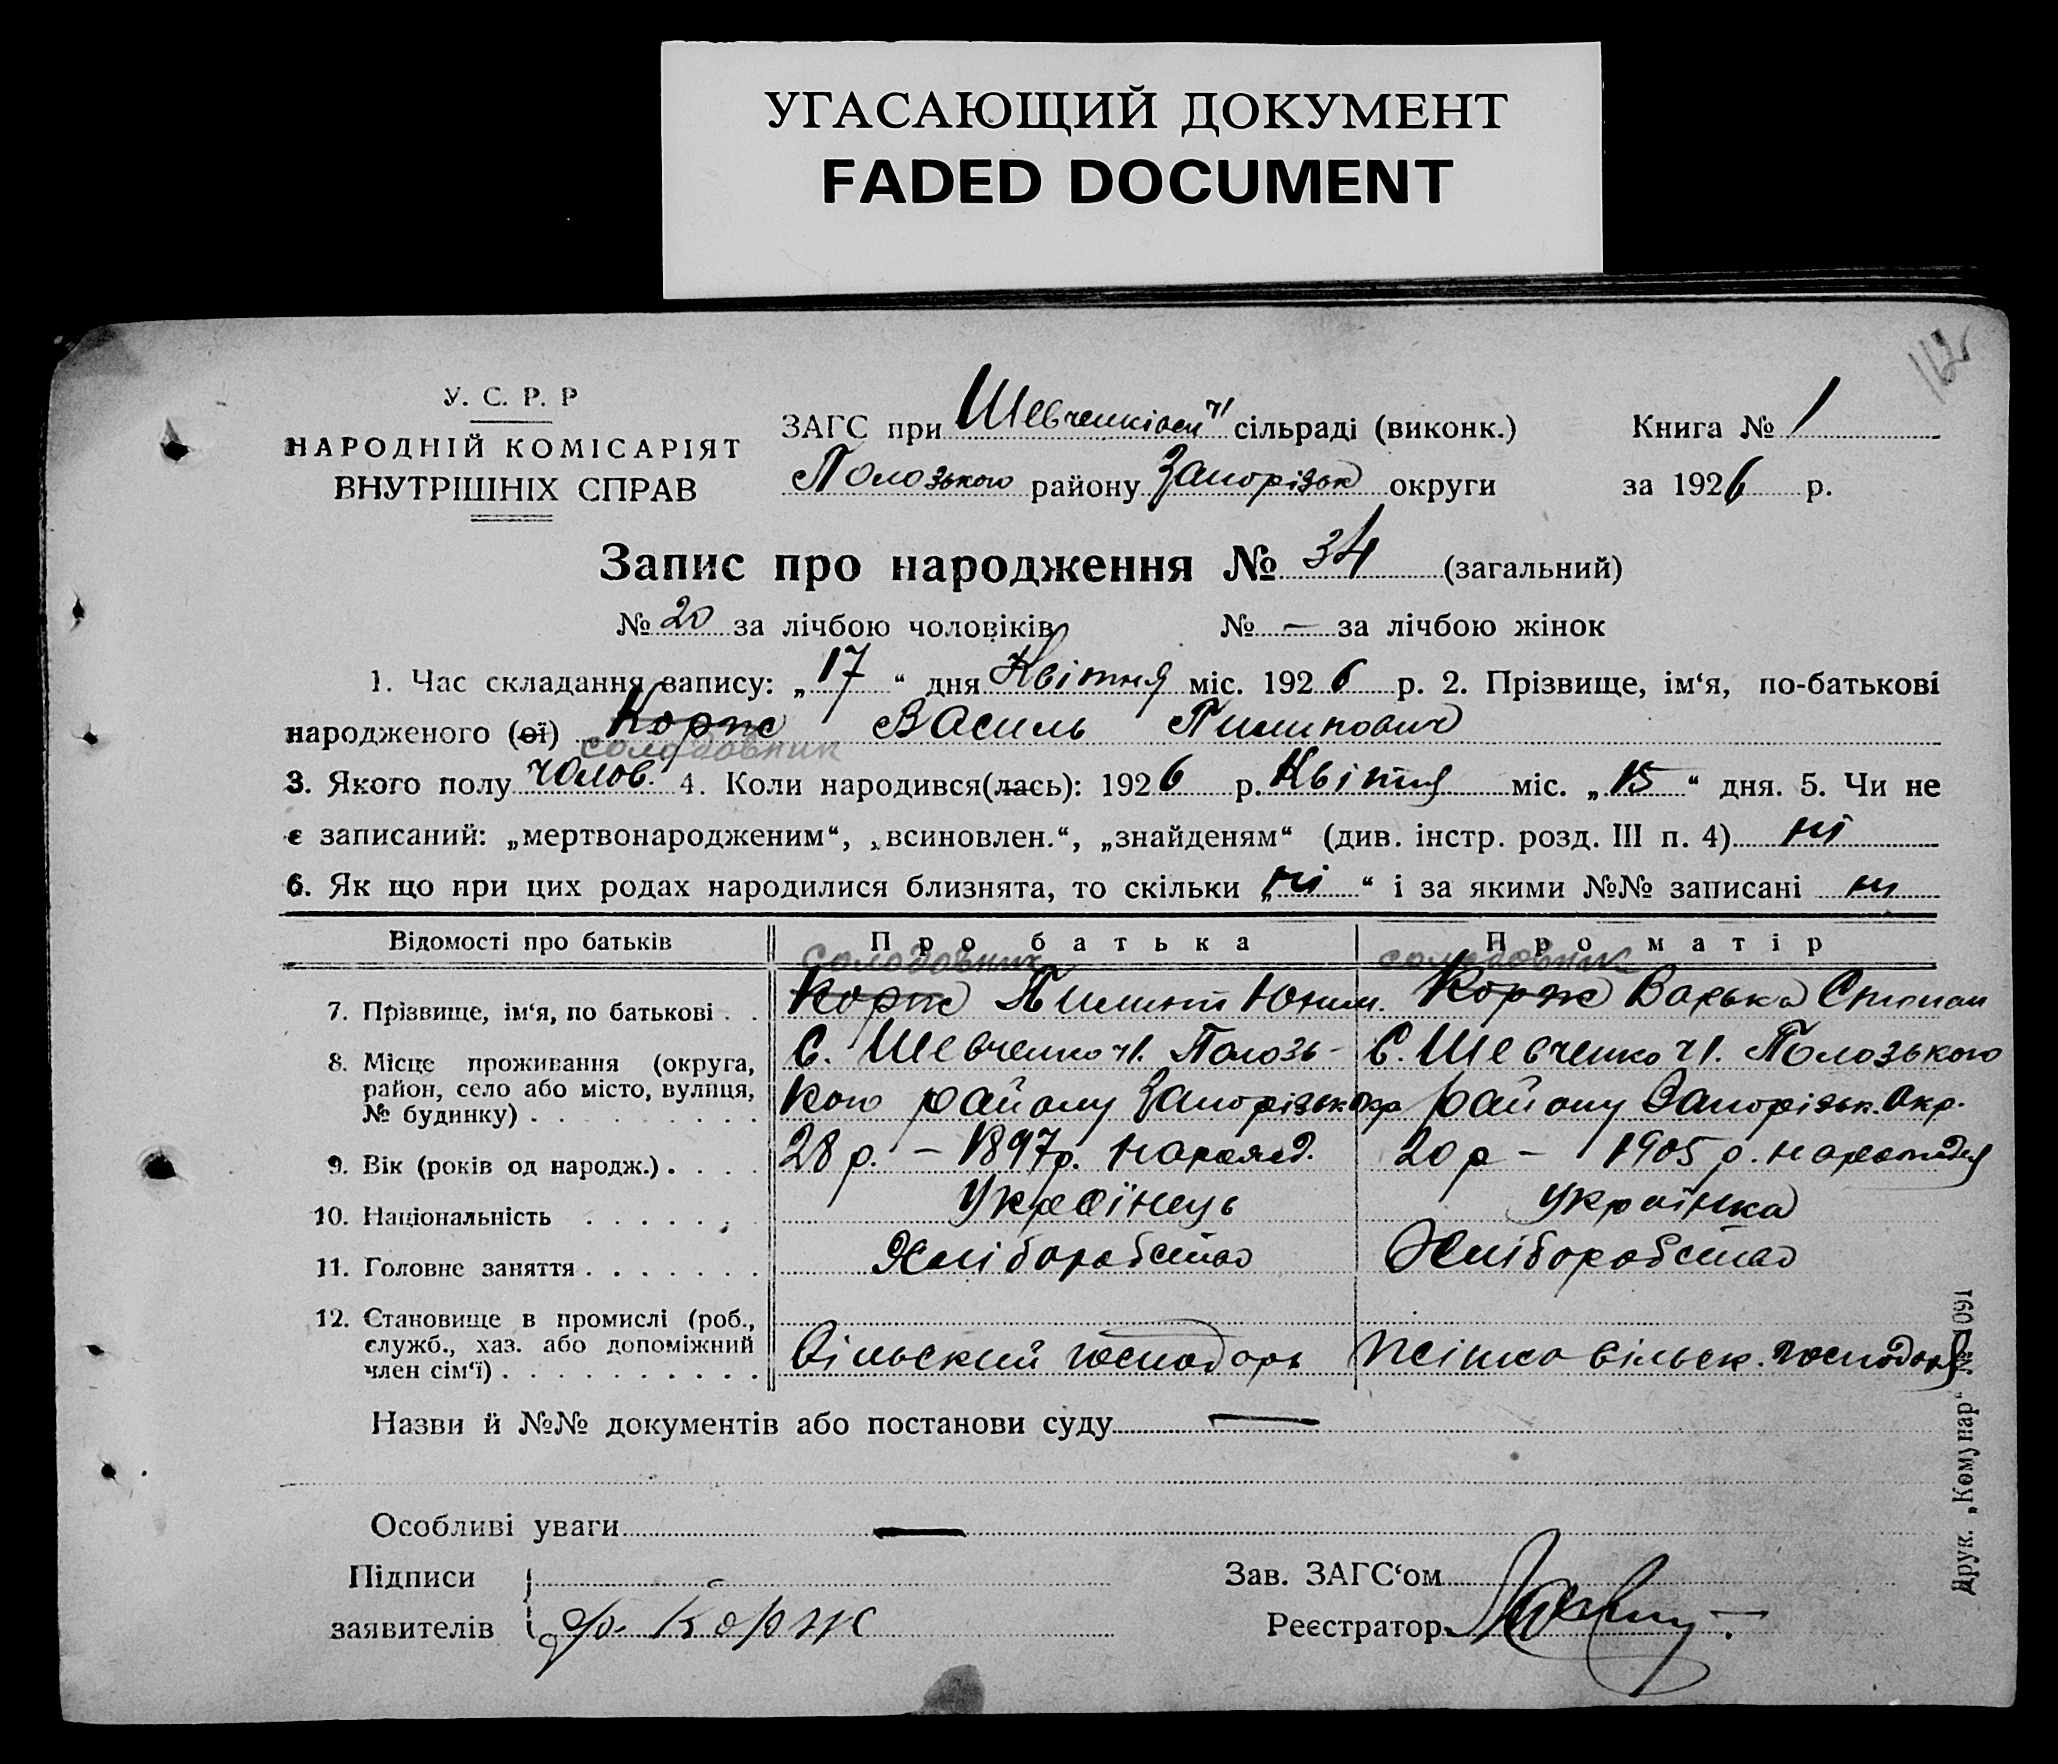 УГАСАЮЩИЙ ДОКУМЕНТ
FADED DOCUMENT
112
У. С. Р. Р
НАРОДНІЙ КОМІСАРІЯТ
ВНУТРІШНІХ СПРАВ
ЗАГС при Шевченківськ. №1 сільраді (виконк.)
Полозького району Запорізьк округи
Книга № 1
за 1926 р.
Запис про народження № 34 (загальний)
№ 20 за лічбою чоловіків № — за лічбою жінок
1. Час складання запису: „17“ дня Квітня міс. 1926 р. 2. Прізвище, ім‘я, по-батькові
народженого (ої) Корж Василь Пилипович
солодовник
3. Якого полу чолов. 4. Коли народився(лась): 1926 р. Квітня міс. „15“ дня. 5. Чи не
є записаний: „мертвонародженим“, „всиновлен.“, „знайденям“ (див. інстр. розд. III п. 4) ні
6. Як що при цих родах народилися близнята, то скільки „ні“ і за якими №№ записані ні
Відомості про батьків Про батька Про матір
солодовник солодовник
7. Прізвище, ім‘я, по батькові . . Корж Пилип Юхим. Корж Варька Степан
8. Місце проживання (округа,
район, село або місто, вулиця,
№ будинку) . . . . . . . . .
С. Шевченко №1. Полозь-
кого району Запорізьк. Окр
С. Шевченко №1. Полозького
району Запорізьк. Окр.
9. Вік (років од народж.) . . . . 28 р. – 1897 р. народ. 20 р – 1905 р. народження
10. Національність . . . . . . Українець Українка
11. Головне заняття . . . . . . . Хліборобство Хліборобство
12. Становище в промислі (роб.,
служб., хаз. або допоміжний
член сім‘ї) . . . . . . . . . .
Сільский господарь Жінка сільск. господаря
Назви й №№ документів або постанови суду —
Особливі уваги —
Підписи
заявителів
Корж
Зав. ЗАГС‘ом
Реєстратор
Друк. „Комунар“ № 1091